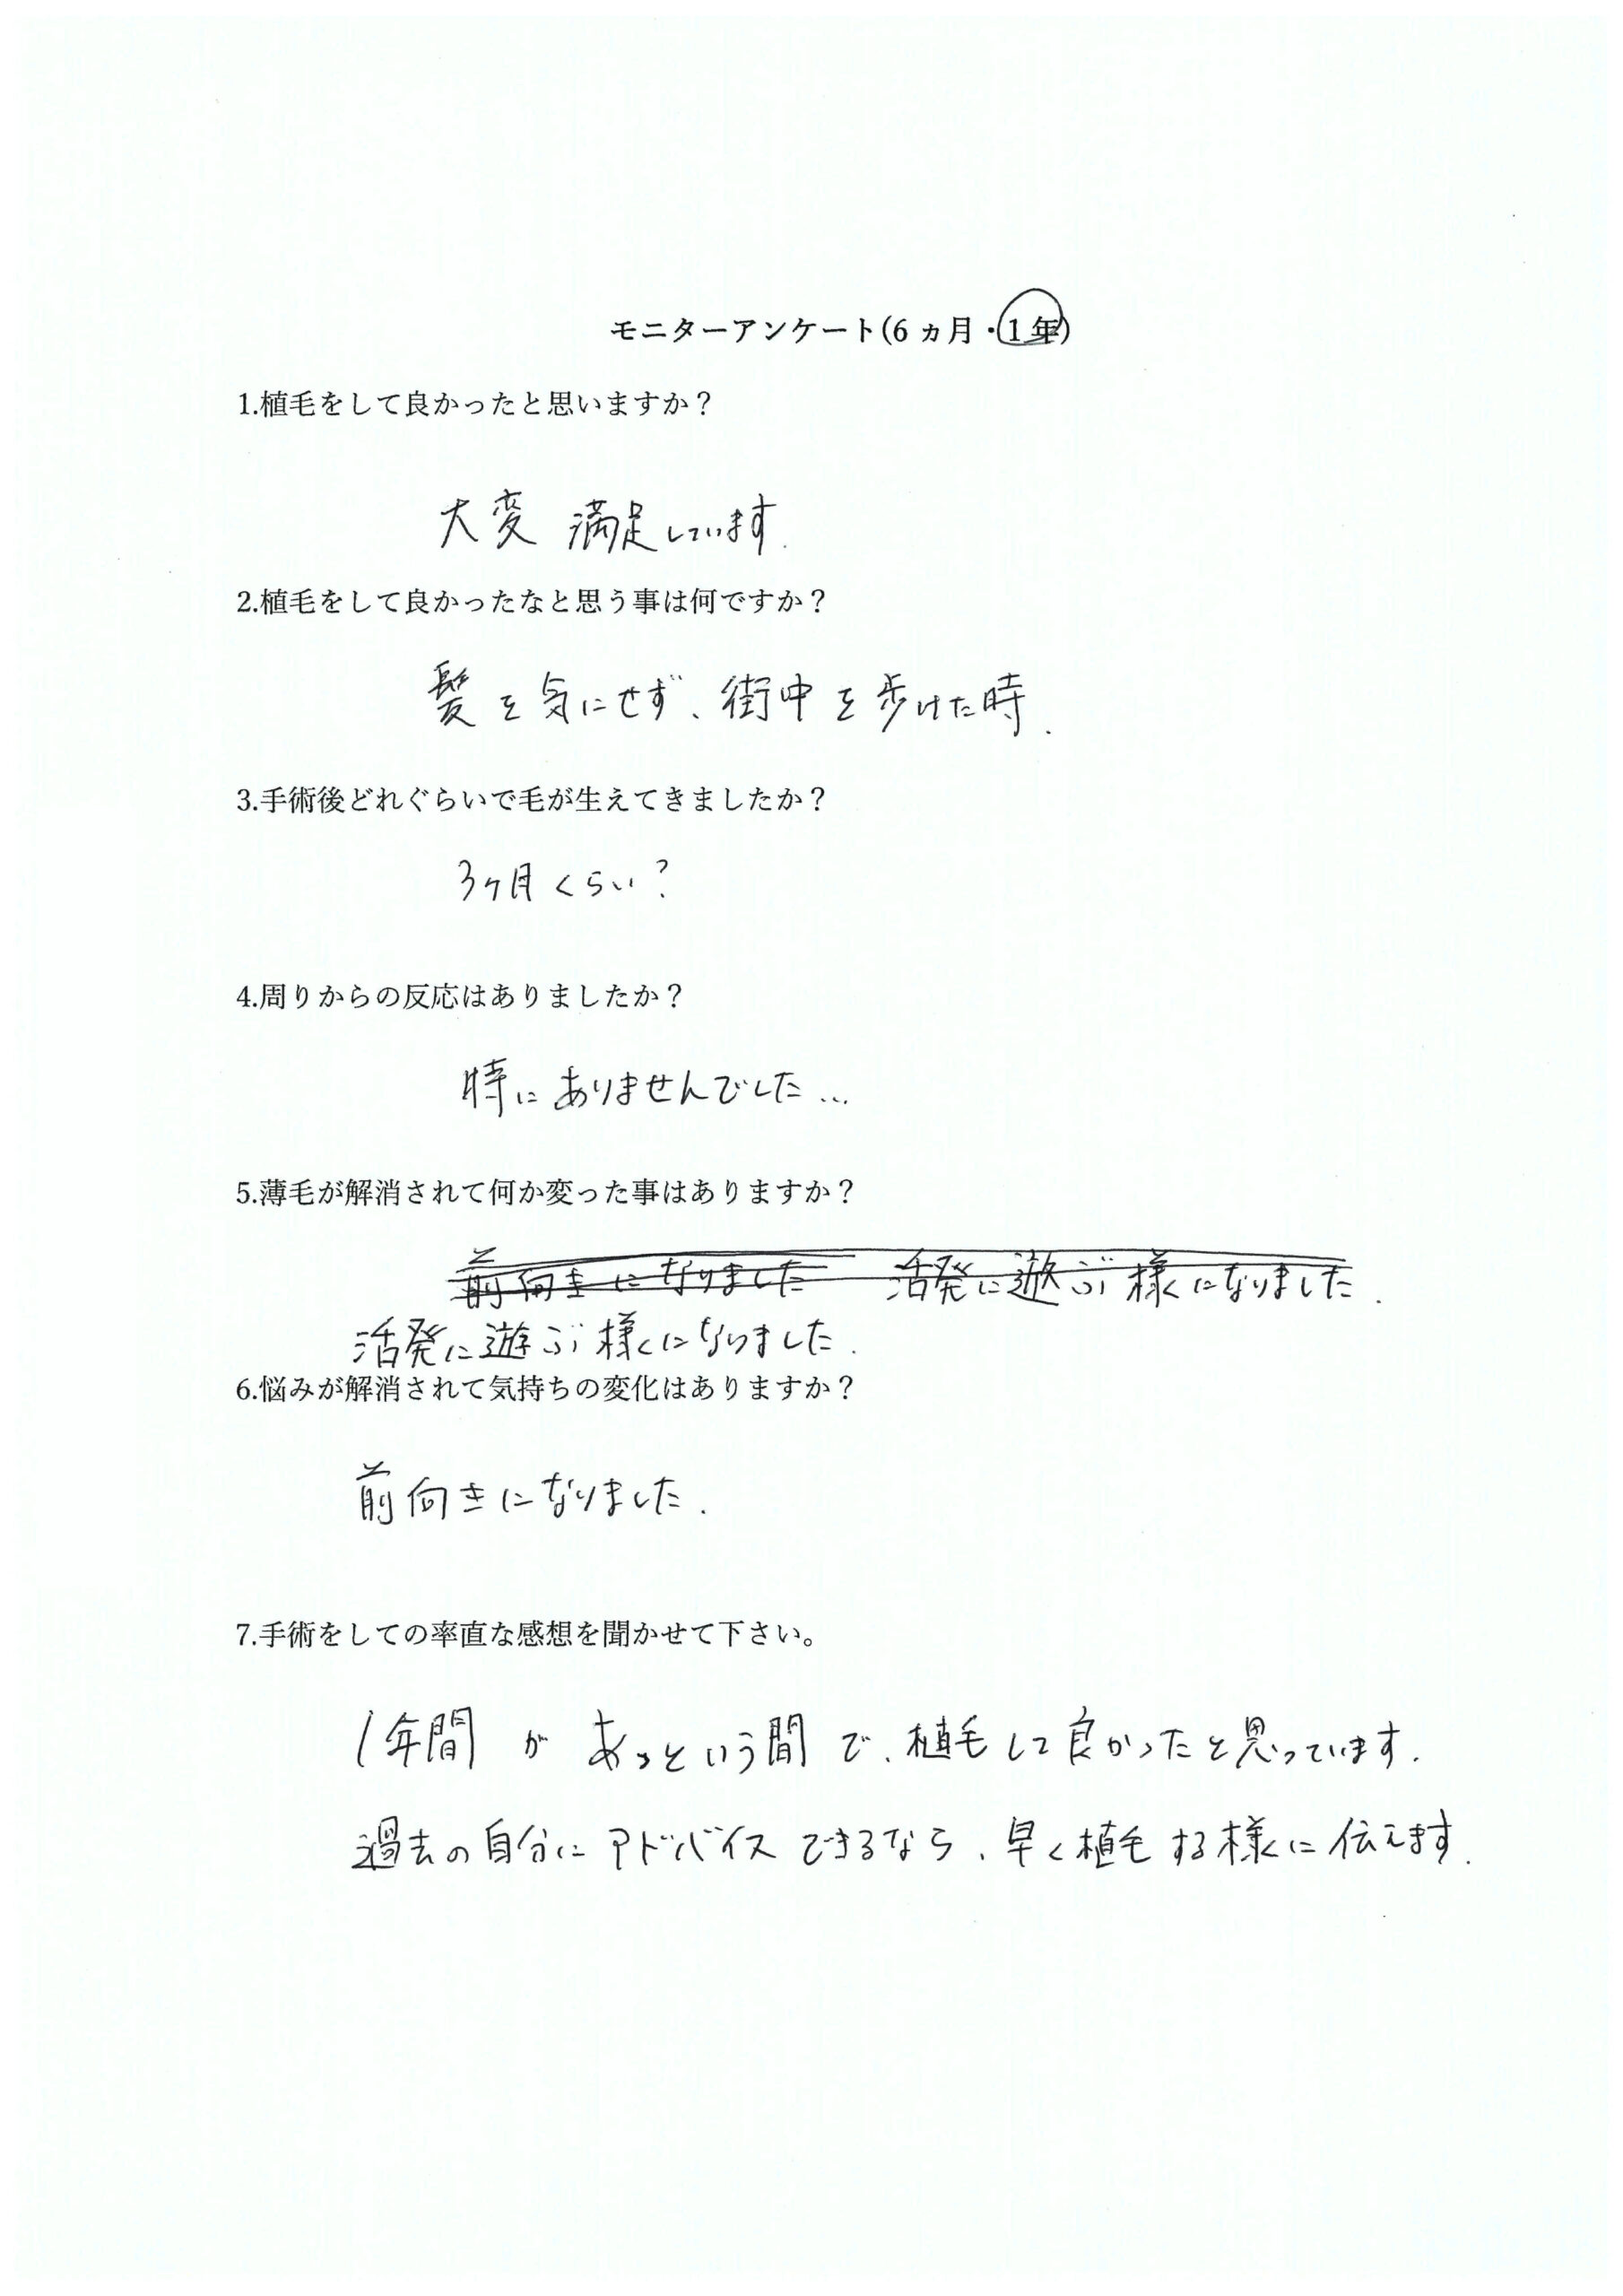 モニターアンケート(6ヵ月・1年)
1.植毛をして良かったと思いますか？
大変 満足しています.
2.植毛をして良かったなと思う事は何ですか？
髪を気にせず、街中を歩けた時.
3.手術後どれぐらいで毛が生えてきましたか？
3ヶ月くらい？
4.周りからの反応はありましたか？
特にありませんでした…
5.薄毛が解消されて何か変った事はありますか？
前向きになりました 活発に遊ぶ様になりました.
活発に遊ぶ様になりました.
6.悩みが解消されて気持ちの変化はありますか？
前向きになりました.
7.手術をしての率直な感想を聞かせて下さい。
1年間があっという間で、植毛して良かったと思っています.
過去の自分にアドバイスできるなら、早く植毛する様に伝えます.